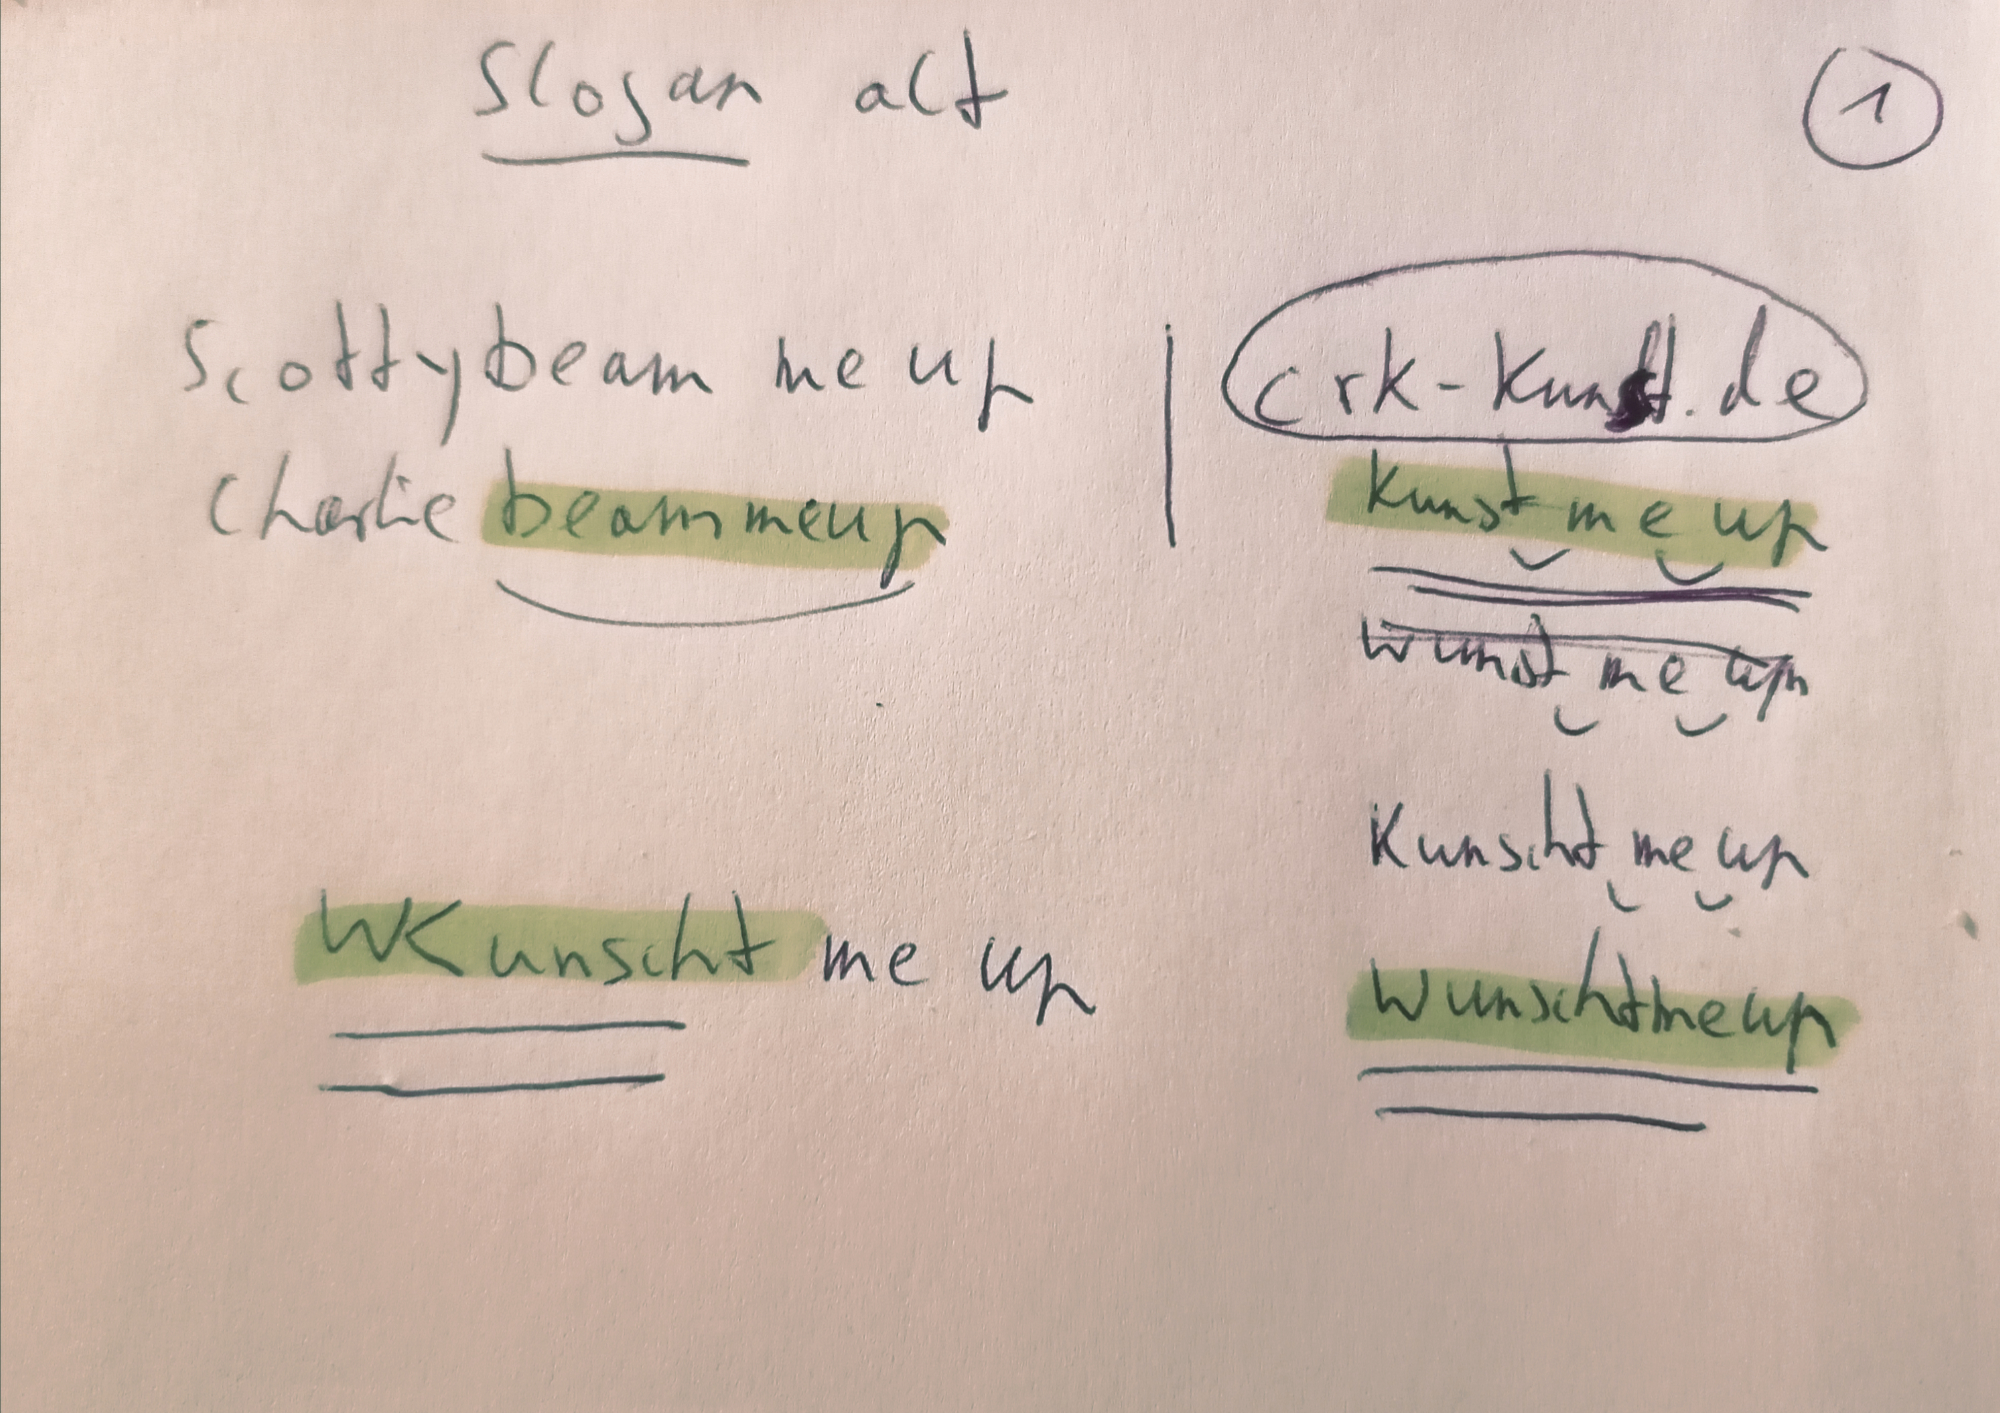 Slogan alt
1
Scotty beam me up
Charlie beam me up
WKunscht me up
crk-kunst.de
Kunst me up
Wunst me up
Kunscht me up
Wunscht me up